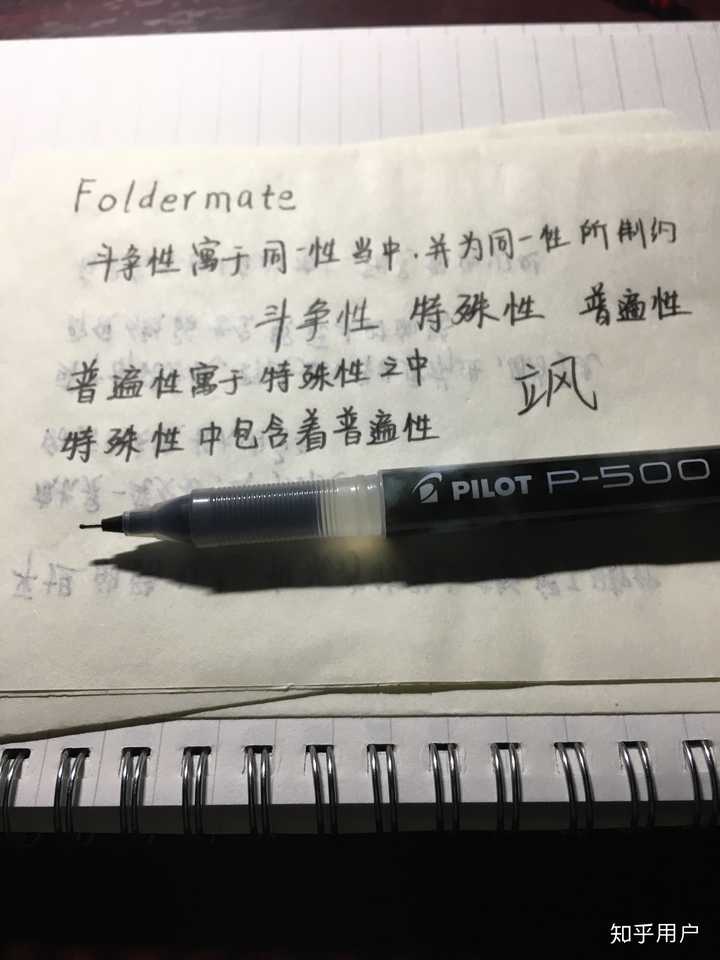 Foldermate
斗争性寓于同一性当中.并为同一性所制约
斗争性 特殊性 普遍性
普遍性寓于特殊性之中
飒
特殊性中包含着普遍性
PILOT P-500
知乎用户